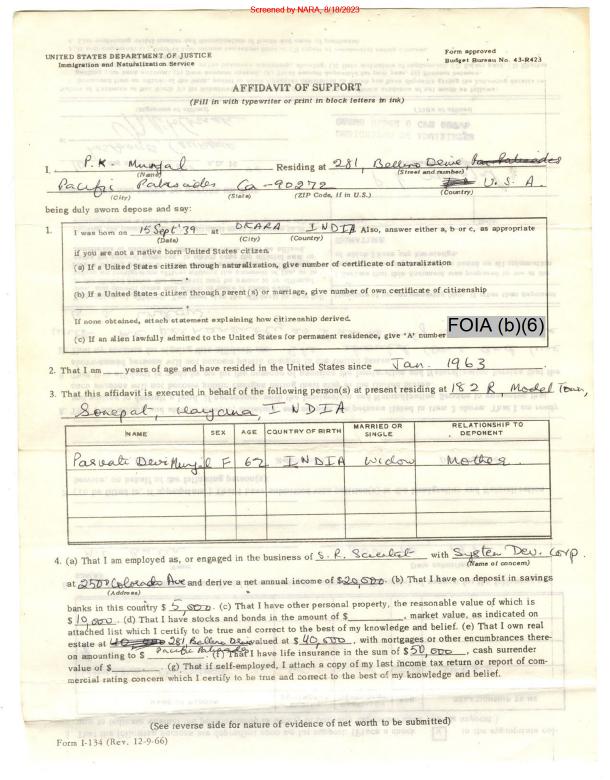 Screened by NARA, 8/18/2023
UNITED STATES DEPARTMENT OF JUSTICE
Immigration and Naturalization Service
Form approved
Budget Bureau No. 43-R423
AFFIDAVIT OF SUPPORT
(Fill in with typewriter or print in block letters in ink)
I, P.K. Munjal Residing at 281, Bellino Drive,
(Name) (Street and number)
Pacific Palisades Ca-90272 U.S.A.
(City) (State) (ZIP Code, if in U.S.) (Country)
being duly sworn depose and say:
1. I was born on 15 Sept '39 at DEARA INDIA Also, answer either a, b or c, as appropriate
(Date) (City) (Country)
if you are not a native born United States citizen.
(a) If a United States citizen through naturalization, give number of certificate of naturalization
(b) If a United States citizen through parent(s) or marriage, give number of own certificate of citizenship
If none obtained, attach statement explaining how citizenship derived.
(c) If an alien lawfully admitted to the United States for permanent residence, give "A" number FOIA (b)(6)
2. That I am ___ years of age and have resided in the United States since Jan. 1963.
3. That this affidavit is executed in behalf of the following person(s) at present residing at 182 R, Model Town,
Sonepat, Haryana, INDIA
NAME SEX AGE COUNTRY OF BIRTH MARRIED OR SINGLE RELATIONSHIP TO DEPONENT
Parvati Devi Munjal F 62 INDIA Widow Mother
4. (a) That I am employed as, or engaged in the business of S.R. Scientist with System Dev. Corp.
(Name of concern)
at 2500 Colorado Ave and derive a net annual income of $20,000. (b) That I have on deposit in savings
(Address)
banks in this country $ 5,000. (c) That I have other personal property, the reasonable value of which is
$ 10,000. (d) That I have stocks and bonds in the amount of $________, market value, as indicated on
attached list which I certify to be true and correct to the best of my knowledge and belief. (e) That I own real
estate at 281 Bellino Drive valued at $ 40,000, with mortgages or other encumbrances there-
Pacific Palisades
on amounting to $ ________. (f) That I have life insurance in the sum of $50,000, cash surrender
value of $________. (g) That if self-employed, I attach a copy of my last income tax return or report of com-
mercial rating concern which I certify to be true and correct to the best of my knowledge and belief.
(See reverse side for nature of evidence of net worth to be submitted)
Form I-134 (Rev. 12-9-66)